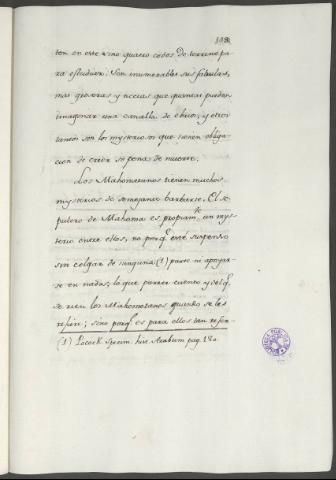 ten en este vino quatro codos de terreno pa-
ra estudiar. Son inumerables sus fabulas,
mas groseras y necias que quantas puedan
imaginar una canalla de ebrios; y otros
tantos son los mysterios que tienen obliga-
cion de creer so pena de muerte.
Los Mahometanos tienen muchos
mysterios de semejante barbarie. El se-
pulcro de Mahoma es propiam.te un mys-
terio entre ellos, no porq.e esté suspenso
sin colgar de ninguna (1) parte ni apoyar-
se en nada; lo que parece cuento y del q.e
se rien los Mahometanos quando se les
refiere; sino porq.e es para ellos tan reser-
(1) Pocock Specim. hist. Arabum pag. 180